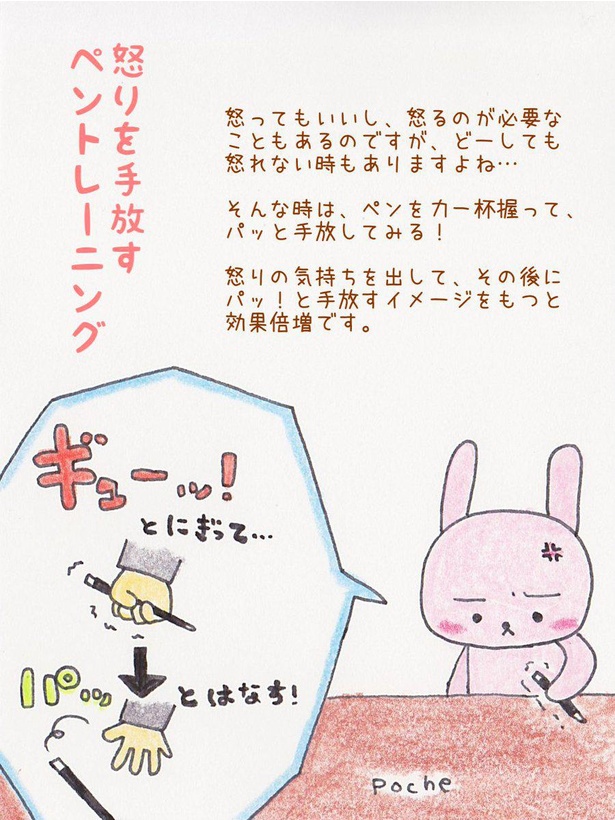 怒りを手放す
ペントレーニング
怒ってもいいし、怒るのが必要な
こともあるのですが、どーしても
怒れない時もありますよね…
そんな時は、ペンを力一杯握って、
パッと手放してみる！
怒りの気持ちを出して、その後に
パッ！と手放すイメージをもつと
効果倍増です。
ギューッ！
とにぎって…
パッ
とはなす！
poche